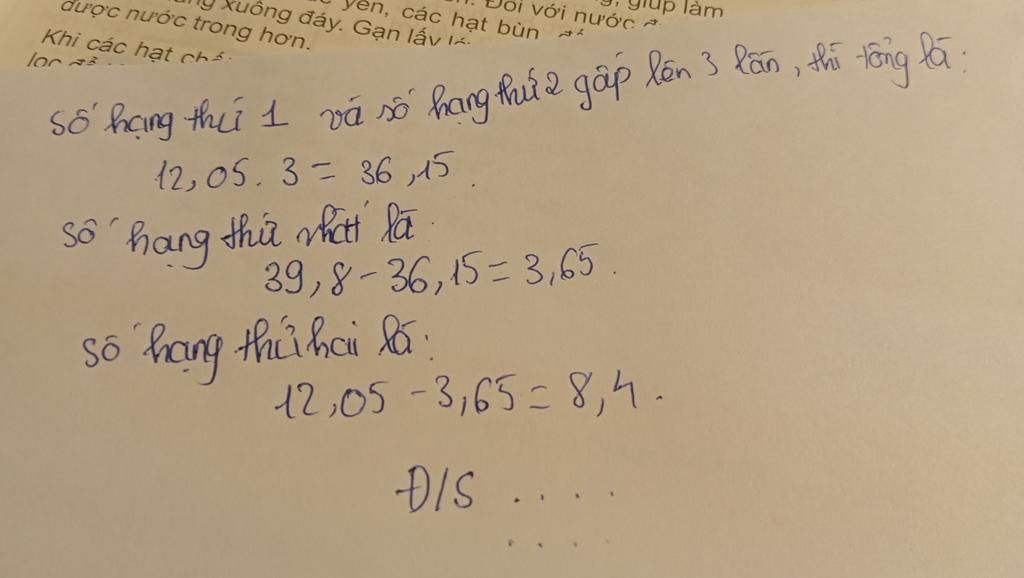 giúp làm
xuống đáy. Gạn lấy
yên, các hạt bùn
Đối với nước
được nước trong hơn.
Khi các hạt
số hạng thứ 1 và số hạng thứ 2 gấp lên 3 lần, thì tổng là:
12,05. 3 = 36,15.
số hạng thứ nhất là
39,8-36,15=3,65.
số hạng thứ hai là:
12,05-3,65=8,4.
Đ/S ....
....